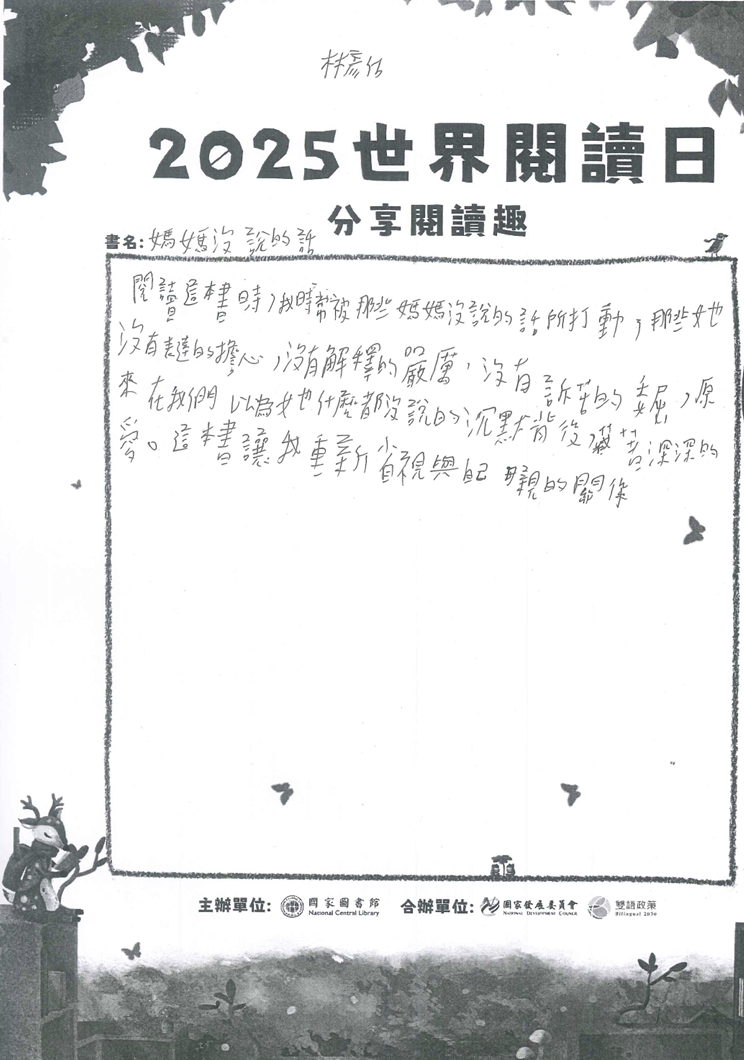 林彥佑
2025世界閱讀日
分享閱讀趣
書名:媽媽沒說的話
閱讀這本書時,我時常被那些媽媽沒說的話所打動,那些她
沒有表達的擔心,沒有解釋的嚴厲,沒有訴苦的委屈,原
來在我們以為她什麼都沒說的沉默背後,藏著深深的
愛。這本書讓我重新省視與自己母親的關係
主辦單位: 國家圖書館 National Central Library 合辦單位: 國家發展委員會 National Development Council 雙語政策 Bilingual 2030